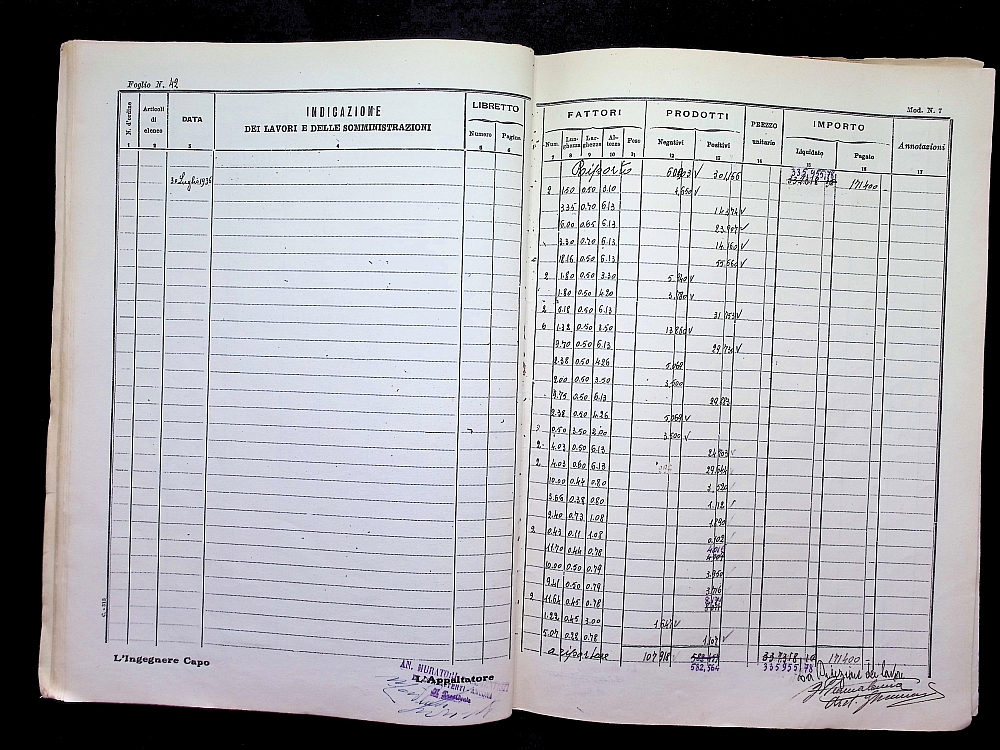 Foglio N. 42
Mod. N. 7
N. d'ordine
Articoli di elenco
DATA
INDICAZIONE
DEI LAVORI E DELLE SOMMINISTRAZIONI
LIBRETTO
Numero
Pagina
FATTORI
Num.
Lunghezza
Larghezza
Altezza
Peso
PRODOTTI
Negativi
Positivi
PREZZO unitario
IMPORTO
Liquidato
Pagato
Annotazioni
1 2 3 4 5 6 7 8 9 10 11 12 13 14 15 16 17
30 Luglio 1936
Riporto 171400
2 1.50 0.50 3.10 4,650
3.35 0.70 6.13 14,374
6.00 0.65 6.13 23,907
3.30 0.70 6.13 14,160
18.16 0.50 6.13 55,660
2 1.80 0.50 3.30 5,940
1.80 0.50 4.20 3,780
2 0.50 6.13 31,753
6 1.32 0.50 3.50 13,860
9.70 0.50 6.13 29,730
2.38 0.50 4.26 5,069
2.00 0.50 3.50 3,500
9.75 0.50 6.13
2.38 0.50 4.26 5,069
0.50 3.50 2.00 3,500
2 4.03 0.50 6.13 24,703
2 4.03 0.60 6.13 29,644
10.00 0.44 0.80 3,520
3.66 0.38 0.80 1,112
2.40 0.73 1.08 1,890
2 0.43 0.11 1.08 0,102
11.70 0.44 0.78
10.00 0.50 0.79 3,950
9.41 0.50 0.79 3,716
2 11.64 0.45 0.78
1.22 0.45 3.00 1,647
5.07 0.28 0.78 1,107
a riportare 107,918 582,564 335955,78 171400
L'Ingegnere Capo
L'Appaltatore
AN. MURATORI
La Direzione dei lavori
C. - 315